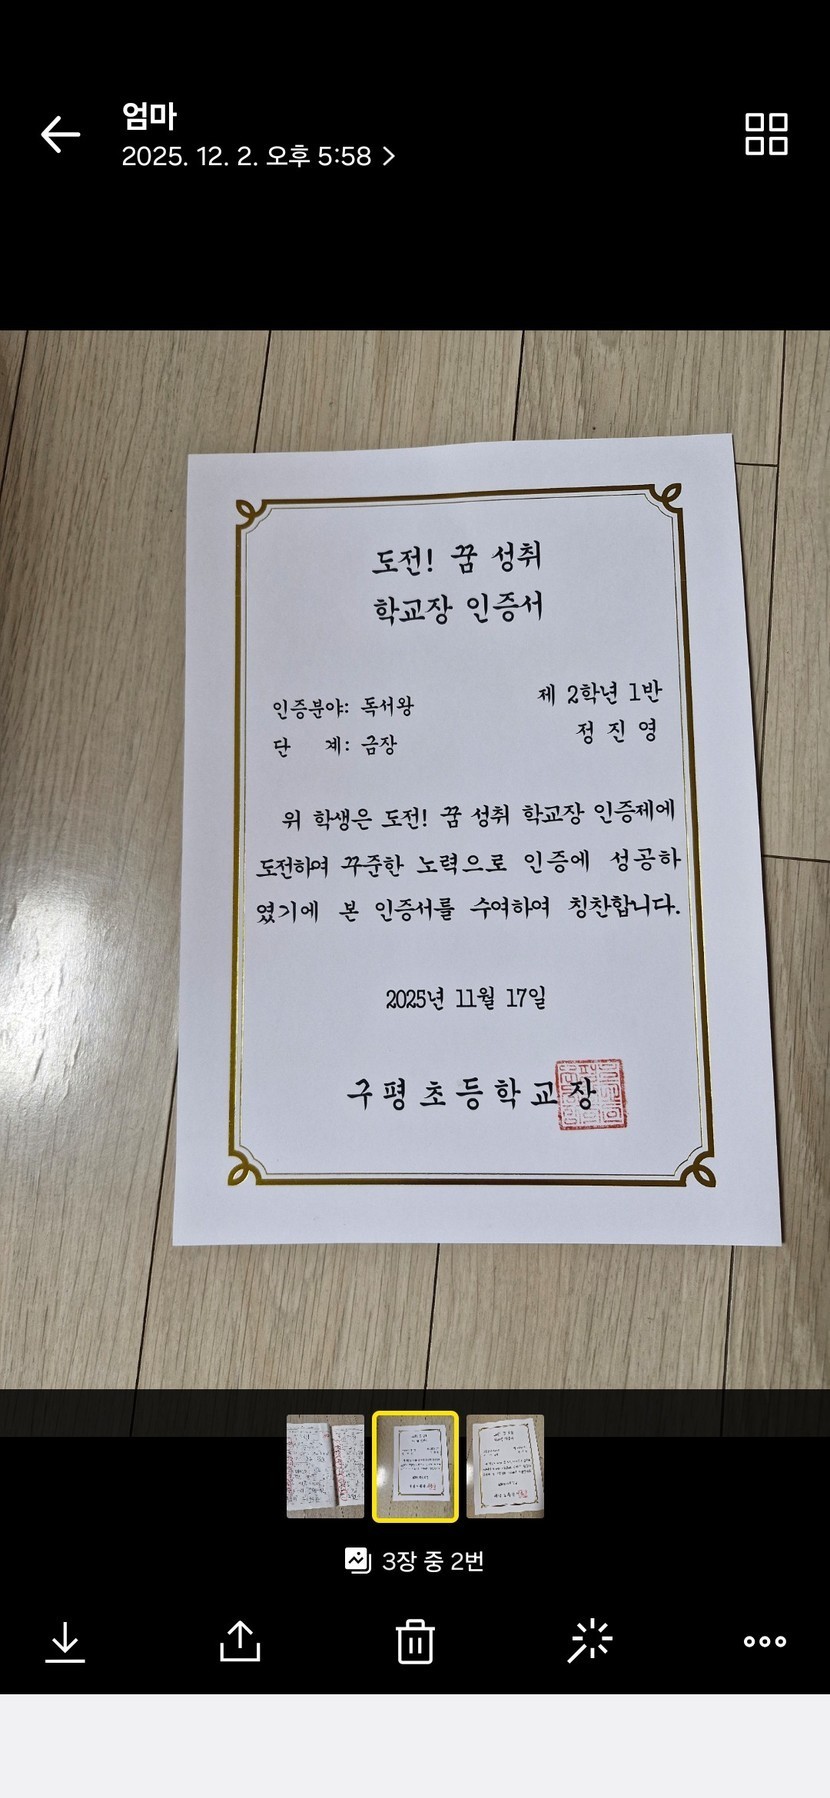 엄마
2025. 12. 2. 오후 5:58
도전! 꿈 성취
학교장 인증서
제 2학년 1반
인증분야: 독서왕
정 진 영
단 계: 금장
위 학생은 도전! 꿈 성취 학교장 인증제에
도전하여 꾸준한 노력으로 인증에 성공하
였기에 본 인증서를 수여하여 칭찬합니다.
2025년 11월 17일
구평초등학교장
3장 중 2번